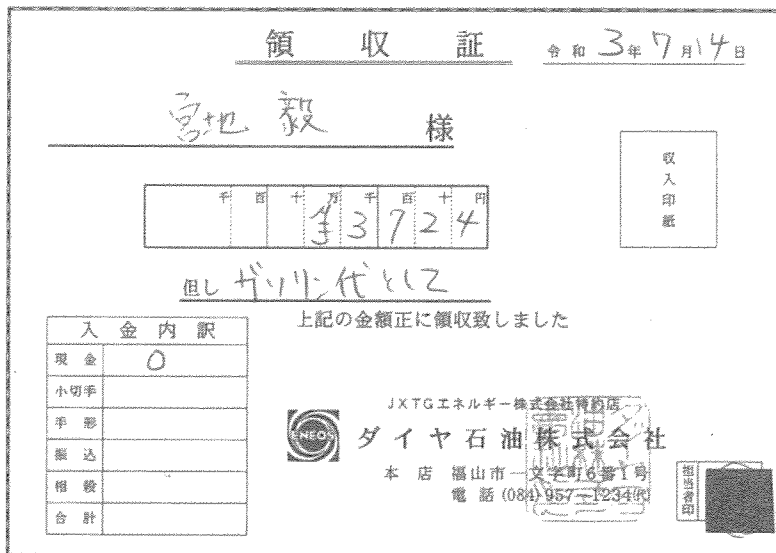 領収証
令和3年7月14日
宮地 毅 様
収入印紙
千百十万千百十円
金3724
但しガソリン代として
上記の金額正に領収致しました
入金内訳
現金 0
小切手
手形
振込
相殺
合計
JXTGエネルギー株式会社特約店
ENEOS
ダイヤ石油株式会社
本店 福山市一文字町6番1号
電話(084)957-1234代
担当者印